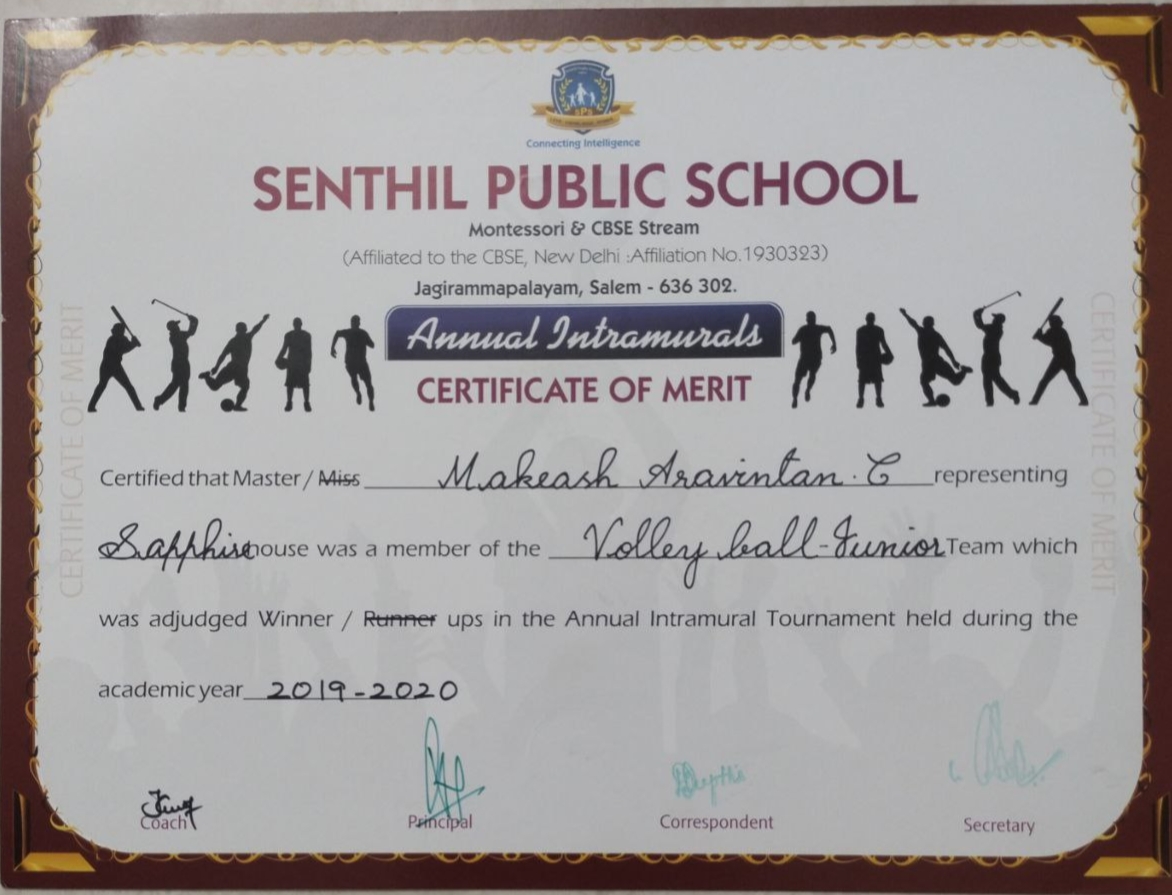 SPS
Connecting Intelligence
SENTHIL PUBLIC SCHOOL
Montessori & CBSE Stream
(Affiliated to the CBSE, New Delhi :Affiliation No.1930323)
Jagirammapalayam, Salem - 636 302.
Annual Intramurals
CERTIFICATE OF MERIT
CERTIFICATE OF MERIT
CERTIFICATE OF MERIT
Certified that Master / Miss Makeash Aravintan. C representing
Sapphire house was a member of the Volley ball-Junior Team which
was adjudged Winner / Runner ups in the Annual Intramural Tournament held during the
academic year 2019-2020
Coach Principal Correspondent Secretary